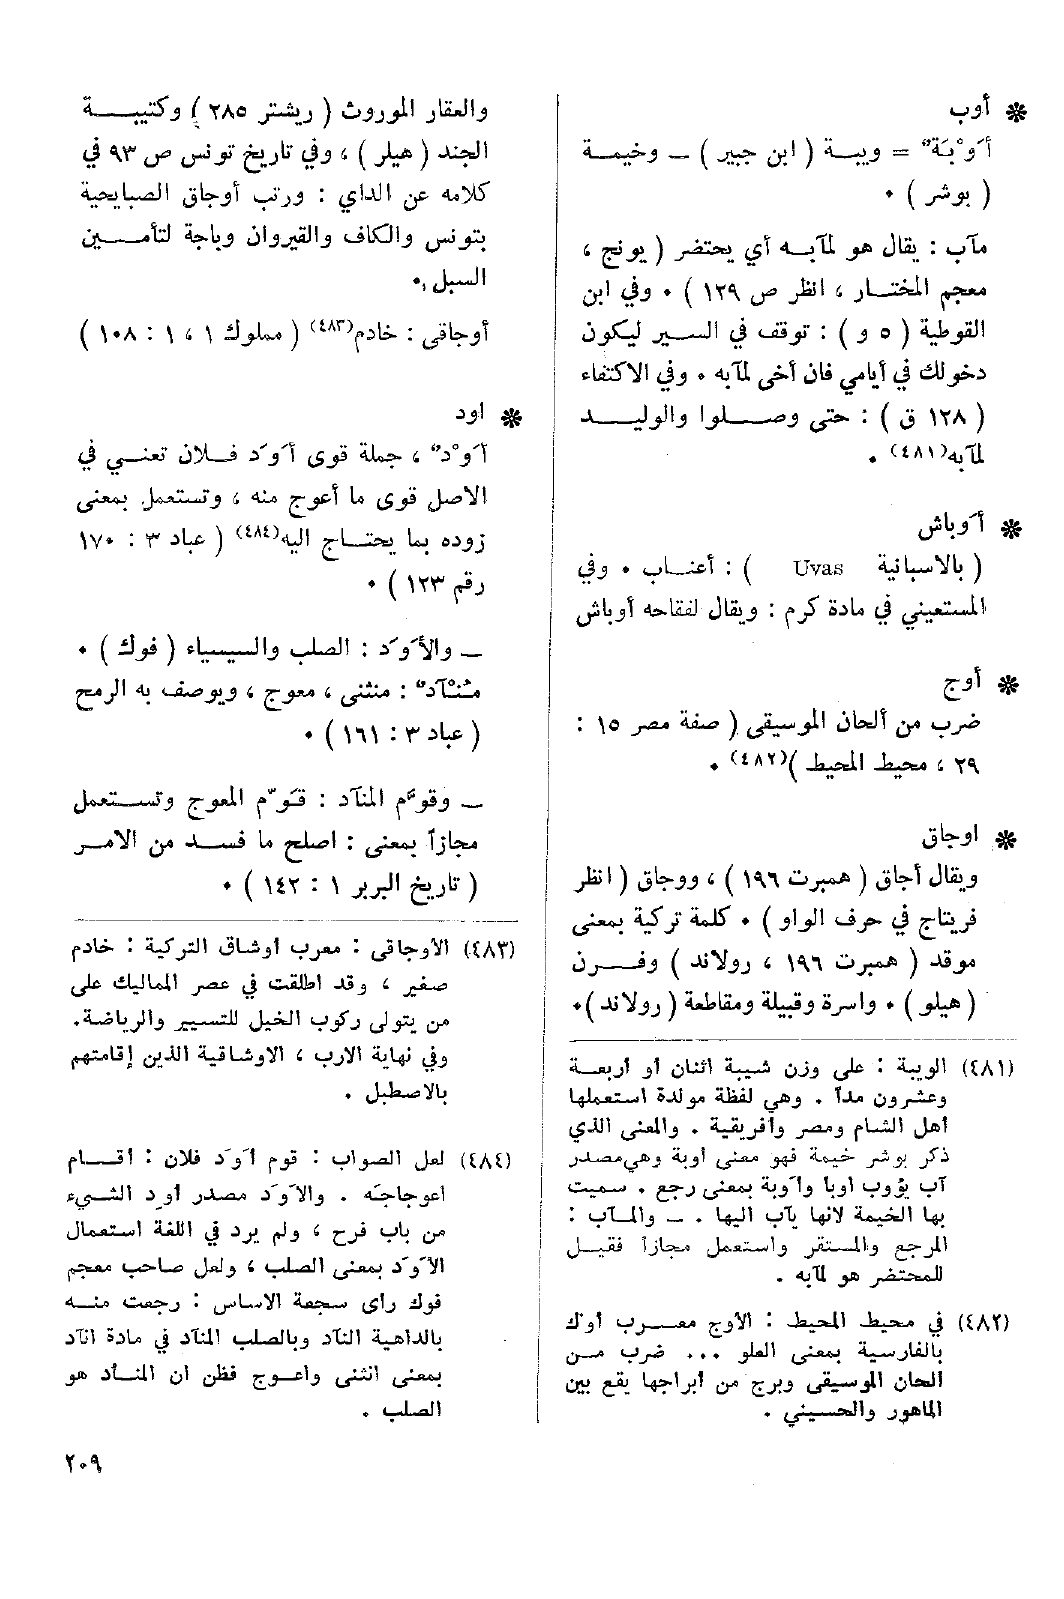 * أوب
أَوْبَة = ويبة ( ابن جبير ) ــ وخيمة
( بوشر ) ٠
مآب : يقال هو لمآبه أي يحتضر ( يونج ،
معجم المختار ، انظر ص ١٢٩ ) ٠ وفي ابن
القوطية ( ٥ و ) : توقف في السير ليكون
دخولك في أيامي فان أخى لمآبه ٠ وفي الاكتفاء
( ١٢٨ ق ) : حتى وصلوا والوليد
لمآبه(٤٨١) ٠
* أَوباش
( بالاسبانية Uvas ) : أعناب ٠ وفي
المستعيني في مادة كرم : ويقال لفقاحه أوباش
* أوج
ضرب من ألحان الموسيقى ( صفة مصر ١٥ :
٢٩ ، محيط المحيط )(٤٨٢) ٠
* اوجاق
ويقال أجاق ( همبرت ١٩٦ ) ، ووجاق ( انظر
فريتاج في حرف الواو ) ٠ كلمة تركية بمعنى
موقد ( همبرت ١٩٦ ، رولاند ) وفرن
( هيلو ) ٠ واسرة وقبيلة ومقاطعة ( رولاند )٠
(٤٨١) الويبة : على وزن شيبة اثنان أو أربعة
وعشرون مداً . وهي لفظة مولدة استعملها
أهل الشام ومصر وافريقية . والمعنى الذي
ذكر بوشر خيمة فهو معنى أوبة وهي مصدر
آب يؤوب أوبا وأوبة بمعنى رجع . سميت
بها الخيمة لانها يآب اليها . ــ والمآب :
المرجع والمستقر واستعمل مجازاً فقيل
للمحتضر هو لمآبه .
(٤٨٢) في محيط المحيط : الأوج معرب أوك
بالفارسية بمعنى العلو ... ضرب من
الحان الموسيقى وبرج من ابراجها يقع بين
الماهور والحسيني .
والعقار الموروث ( ريشتر ٢٨٥ ) وكتيبة
الجند ( هيلر ) ، وفي تاريخ تونس ص ٩٣ في
كلامه عن الداي : ورتب أوجاق الصبايحية
بتونس والكاف والقيروان وباجة لتأمين
السبل ٠
أوجاقى : خادم(٤٨٣) ( مملوك ١ ، ١ : ١٠٨ )
* اود
أَوْد ، جملة قوى أَوَد فلان تعني في
الاصل قوى ما أعوج منه ، وتستعمل بمعنى
زوده بما يحتاج اليه(٤٨٤) ( عباد ٣ : ١٧٠
رقم ١٢٣ ) ٠
ــ والأَوَد : الصلب والسيساء ( فوك ) ٠
مُنْآد : منثنى ، معوج ، ويوصف به الرمح
( عباد ٣ : ١٦١ ) ٠
ــ وقوَّم المنآد : قَوّم المعوج وتستعمل
مجازاً بمعنى : اصلح ما فسد من الامر
( تاريخ البربر ١ : ١٤٢ ) ٠
(٤٨٣) الأوجاقى : معرب أوشاق التركية : خادم
صغير ، وقد اطلقت في عصر المماليك على
من يتولى ركوب الخيل للتسيير والرياضة.
وفي نهاية الارب ، الاوشاقية الذين إقامتهم
بالاصطبل .
(٤٨٤) لعل الصواب : قوم أَوَد فلان : أقام
اعوجاجه . والأَوَد مصدر أوِد الشيء
من باب فرح ، ولم يرد في اللغة استعمال
الأوَد بمعنى الصلب ، ولعل صاحب معجم
فوك رأى سجعة الاساس : رجعت منه
بالداهية النآد وبالصلب المنآد في مادة انآد
بمعنى انثنى واعوج فظن ان المنآد هو
الصلب .
٢٠٩